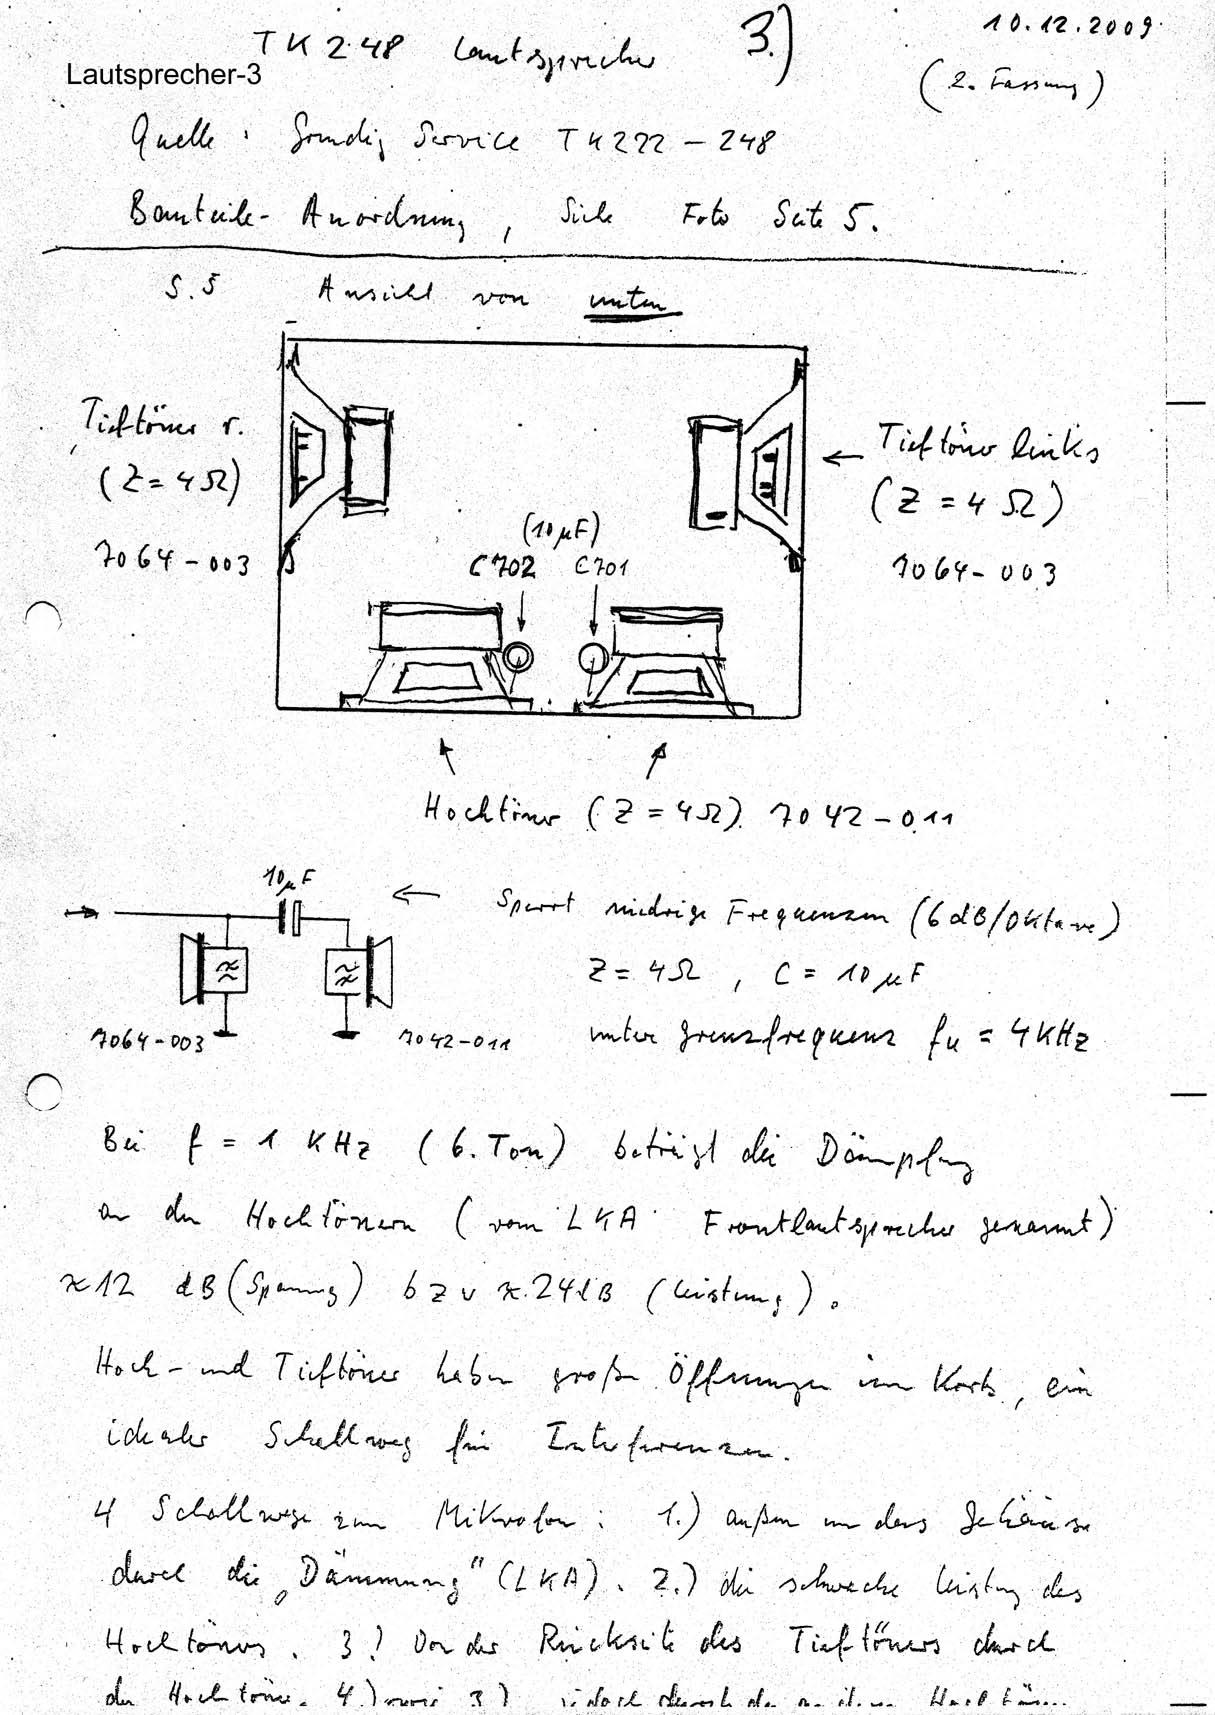 10.12.2009
TK 248 Lautsprecher 3.)
Lautsprecher-3
(2. Fassung)
Quelle: Grundig Service TK222 - 248
Bauteile-Anordnung, Siehe Foto Seite 5.
S.5 Ansicht von unten
Tieftöner r.
(Z = 4 Ω)
7064-003
Tieftöner links
(Z = 4 Ω)
7064-003
(10 µF)
C702 C701
Hochtöner (Z = 4Ω) 7042-011
10 µF
7064-003 7042-011
← Sperrt niedrige Frequenzen (6 dB/Oktave)
Z = 4Ω, C = 10 µF
untere Grenzfrequenz fu = 4 KHz
Bei f = 1 KHz (6. Ton) beträgt die Dämpfung
an den Hochtönern (vom LKA Frontlautsprecher genannt)
≈12 dB (Spannung) bzw ≈ 24dB (Leistung).
Hoch- und Tieftöner haben große Öffnungen im Korb, ein
idealer Schallweg für Interferenzen.
4 Schallwege zum Mikrofon: 1.) außen um das Gehäuse
durch die „Dämmung" (LKA). 2.) die schwache Leistung des
Hochtöners. 3.) Von der Rückseite des Tieftöners durch
den Hochtöner. 4.) wie 3.) jedoch durch den anderen Hochtöner